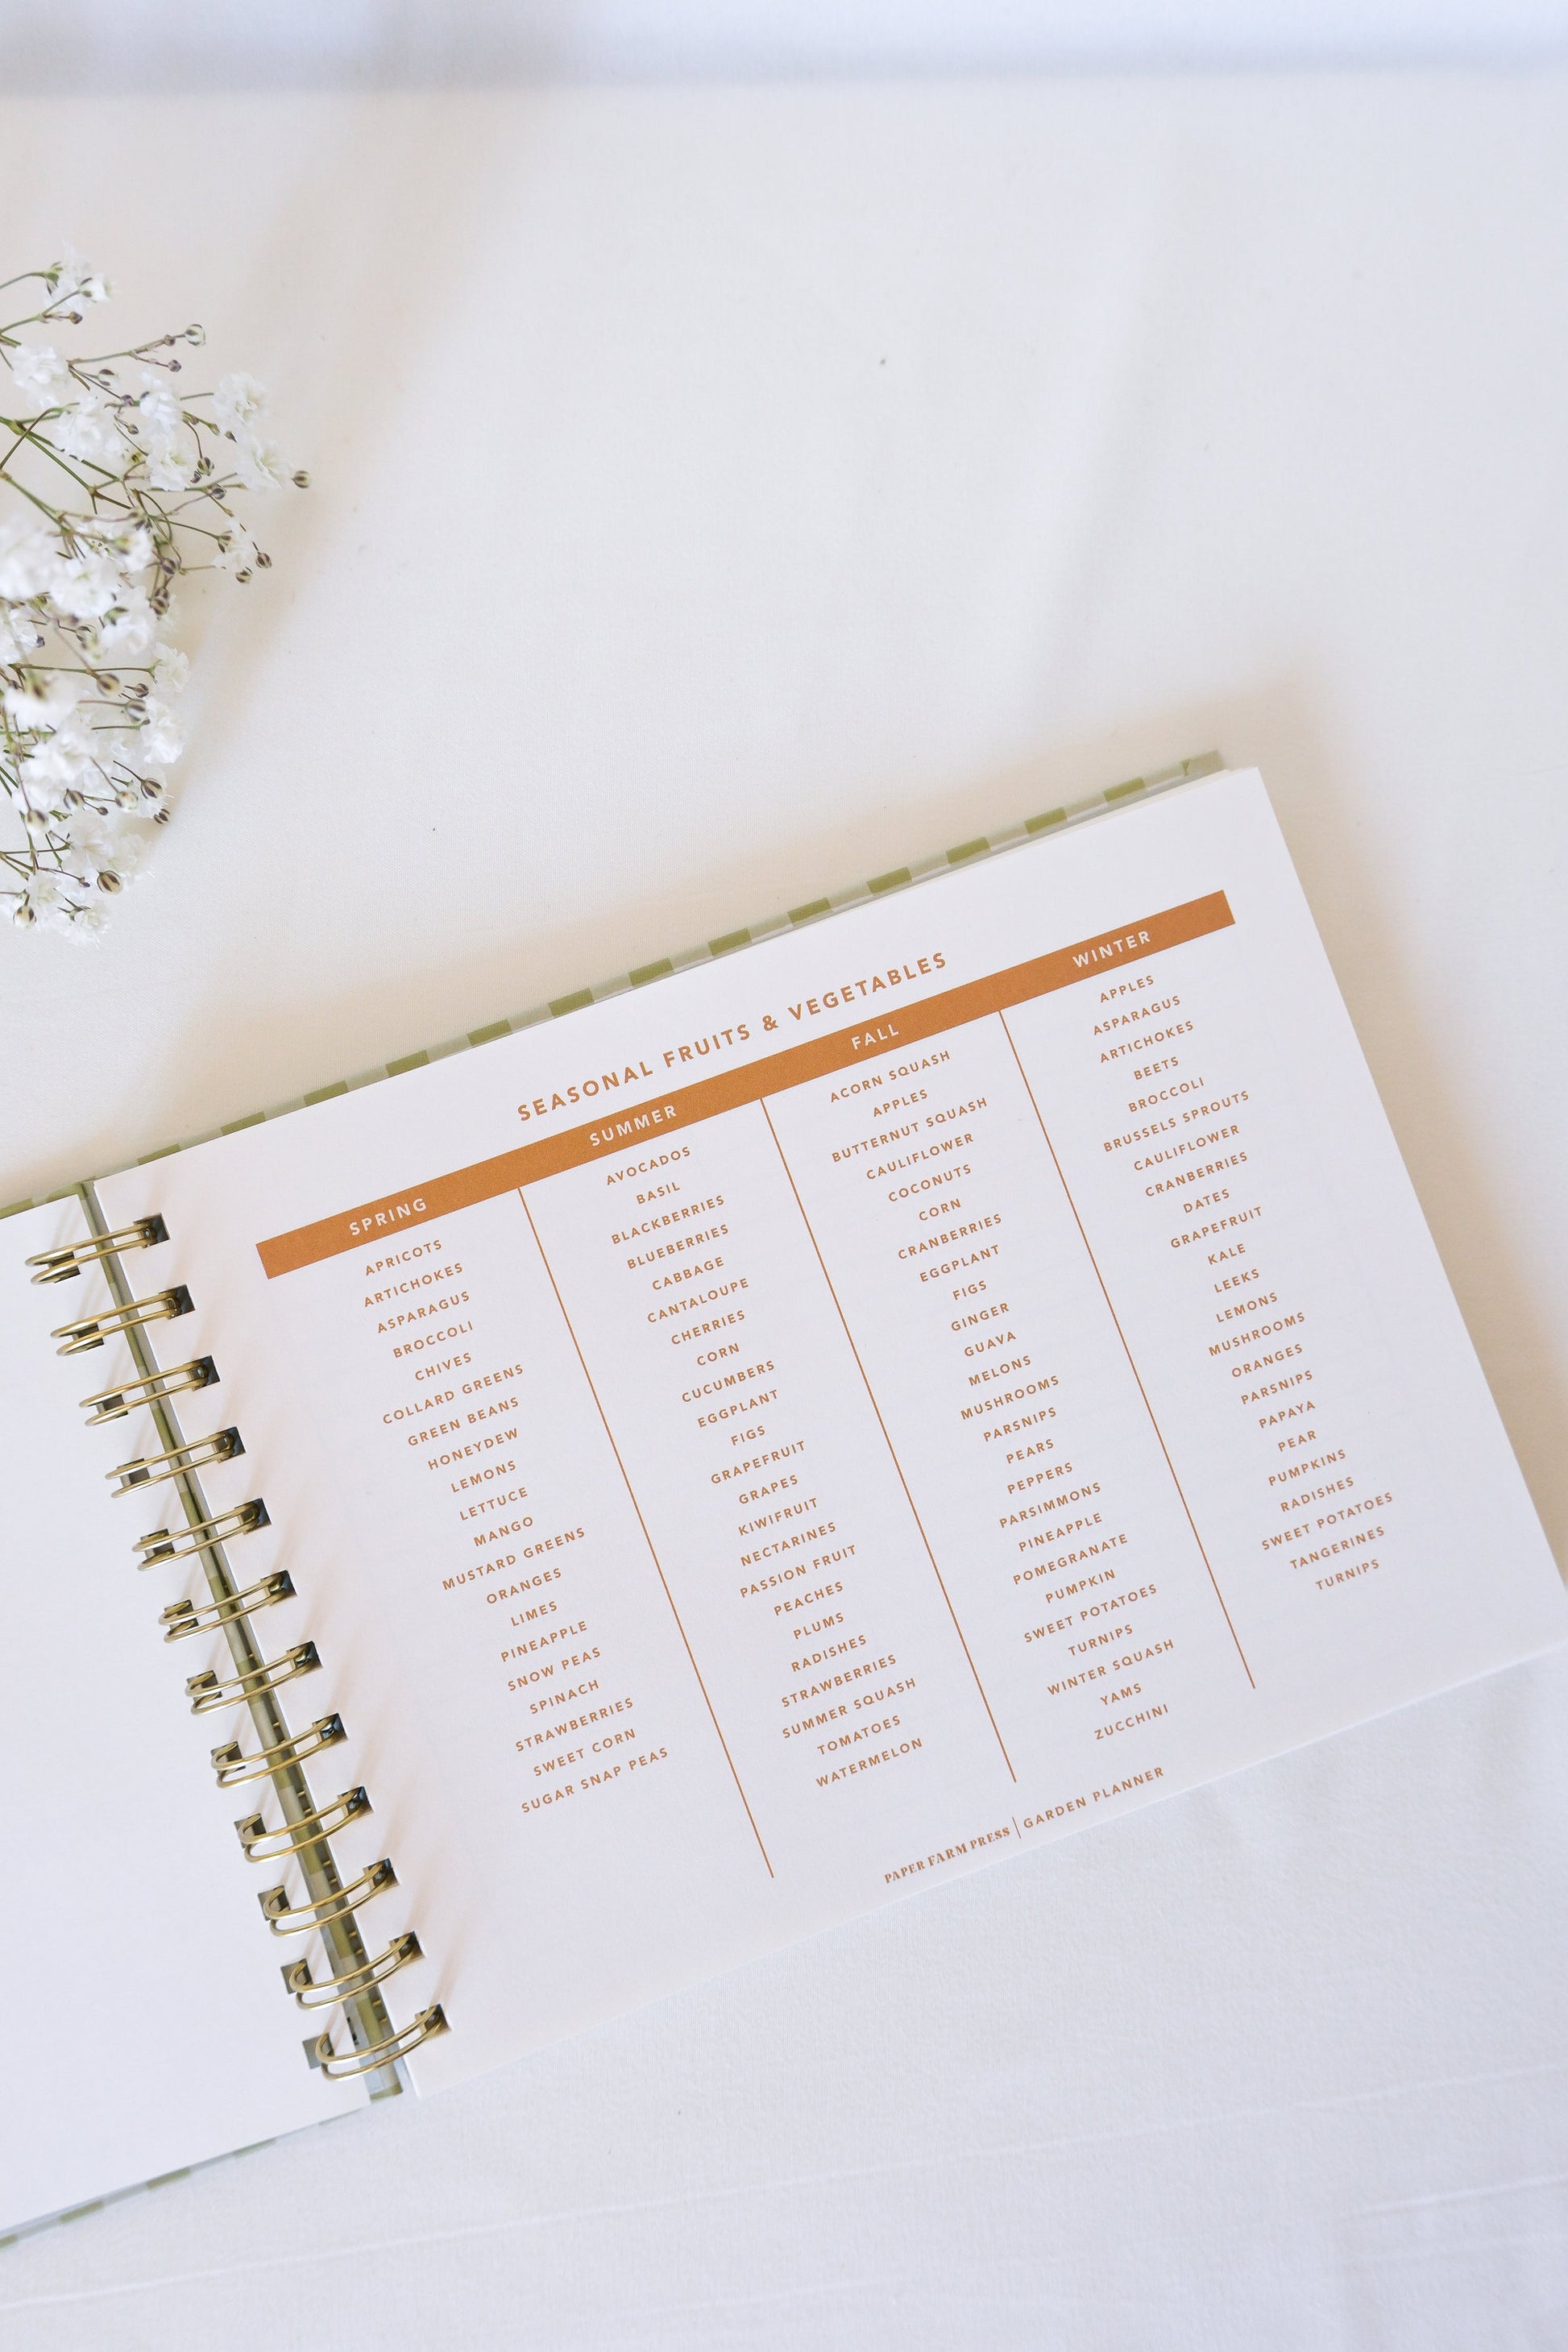 SEASONAL FRUITS & VEGETABLES
SPRING
APRICOTS
ARTICHOKES
ASPARAGUS
BROCCOLI
CHIVES
COLLARD GREENS
GREEN BEANS
HONEYDEW
LEMONS
LETTUCE
MANGO
MUSTARD GREENS
ORANGES
LIMES
PINEAPPLE
SNOW PEAS
SPINACH
STRAWBERRIES
SWEET CORN
SUGAR SNAP PEAS
SUMMER
AVOCADOS
BASIL
BLACKBERRIES
BLUEBERRIES
CABBAGE
CANTALOUPE
CHERRIES
CORN
CUCUMBERS
EGGPLANT
FIGS
GRAPEFRUIT
GRAPES
KIWIFRUIT
NECTARINES
PASSION FRUIT
PEACHES
PLUMS
RADISHES
STRAWBERRIES
SUMMER SQUASH
TOMATOES
WATERMELON
FALL
ACORN SQUASH
APPLES
BUTTERNUT SQUASH
CAULIFLOWER
COCONUTS
CORN
CRANBERRIES
EGGPLANT
FIGS
GINGER
GUAVA
MELONS
MUSHROOMS
PARSNIPS
PEARS
PEPPERS
PARSIMMONS
PINEAPPLE
POMEGRANATE
PUMPKIN
SWEET POTATOES
TURNIPS
WINTER SQUASH
YAMS
ZUCCHINI
WINTER
APPLES
ASPARAGUS
ARTICHOKES
BEETS
BROCCOLI
BRUSSELS SPROUTS
CAULIFLOWER
CRANBERRIES
DATES
GRAPEFRUIT
KALE
LEEKS
LEMONS
MUSHROOMS
ORANGES
PARSNIPS
PAPAYA
PEAR
PUMPKINS
RADISHES
SWEET POTATOES
TANGERINES
TURNIPS
PAPER FARM PRESS | GARDEN PLANNER